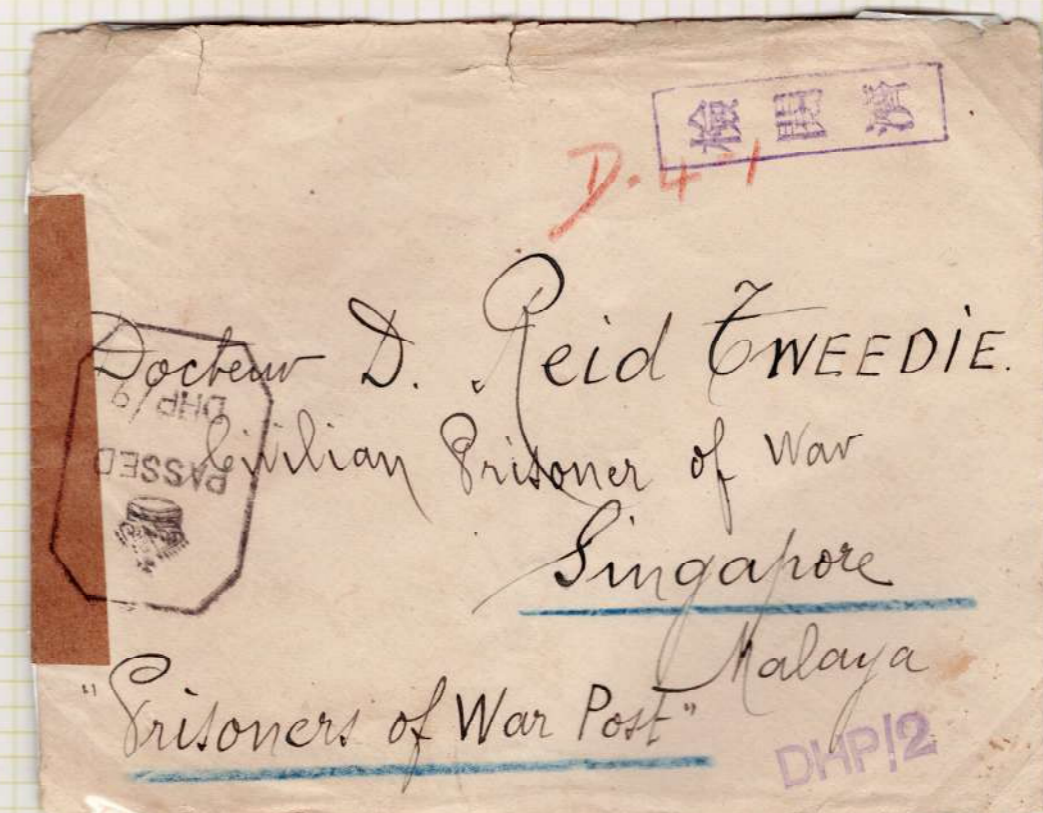 檢閲濟
D. 4-1
Docteur D. Reid TWEEDIE.
Civilian Prisoner of War
Singapore
Malaya
"Prisoners of War Post"
PASSED
DHP/9
DHP/2